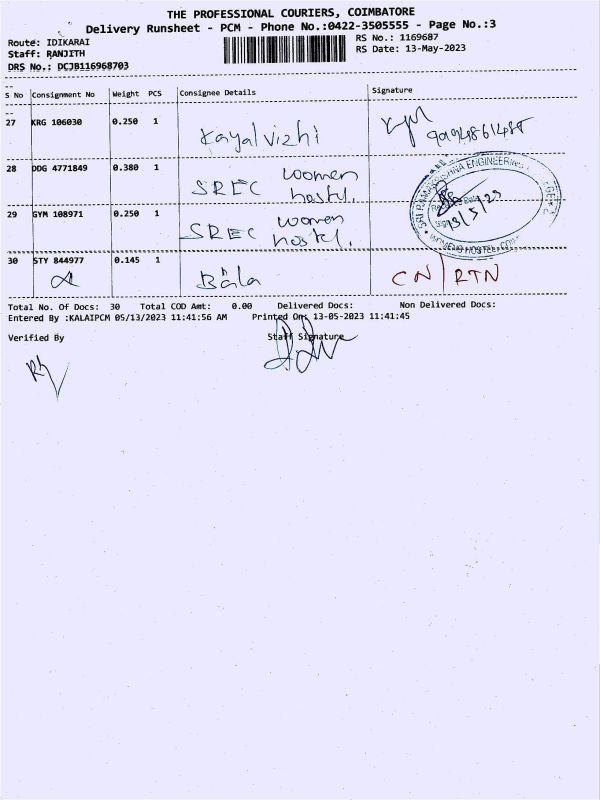 THE PROFESSIONAL COURIERS, COIMBATORE
Delivery Runsheet - PCM - Phone No.:0422-3505555 - Page No.:3
Route: IDIKARAI
RS No.: 1169687
Staff: RANJITH
RS Date: 13-May-2023
DRS No.: DCJB116968703
S No Consignment No Weight PCS Consignee Details Signature
27 KRG 106030 0.250 1 Kayalvizhi
28 DDG 4771849 0.380 1 SREC women hostel.
29 GYM 108971 0.250 1 SREC women hostel.
13/5/23
30 STY 844977 0.145 1 Bala CN/RTN
Total No. Of Docs: 30 Total COD Amt: 0.00 Delivered Docs: Non Delivered Docs:
Entered By :KALAIPCM 05/13/2023 11:41:56 AM Printed On: 13-05-2023 11:41:45
Verified By Staff Signature